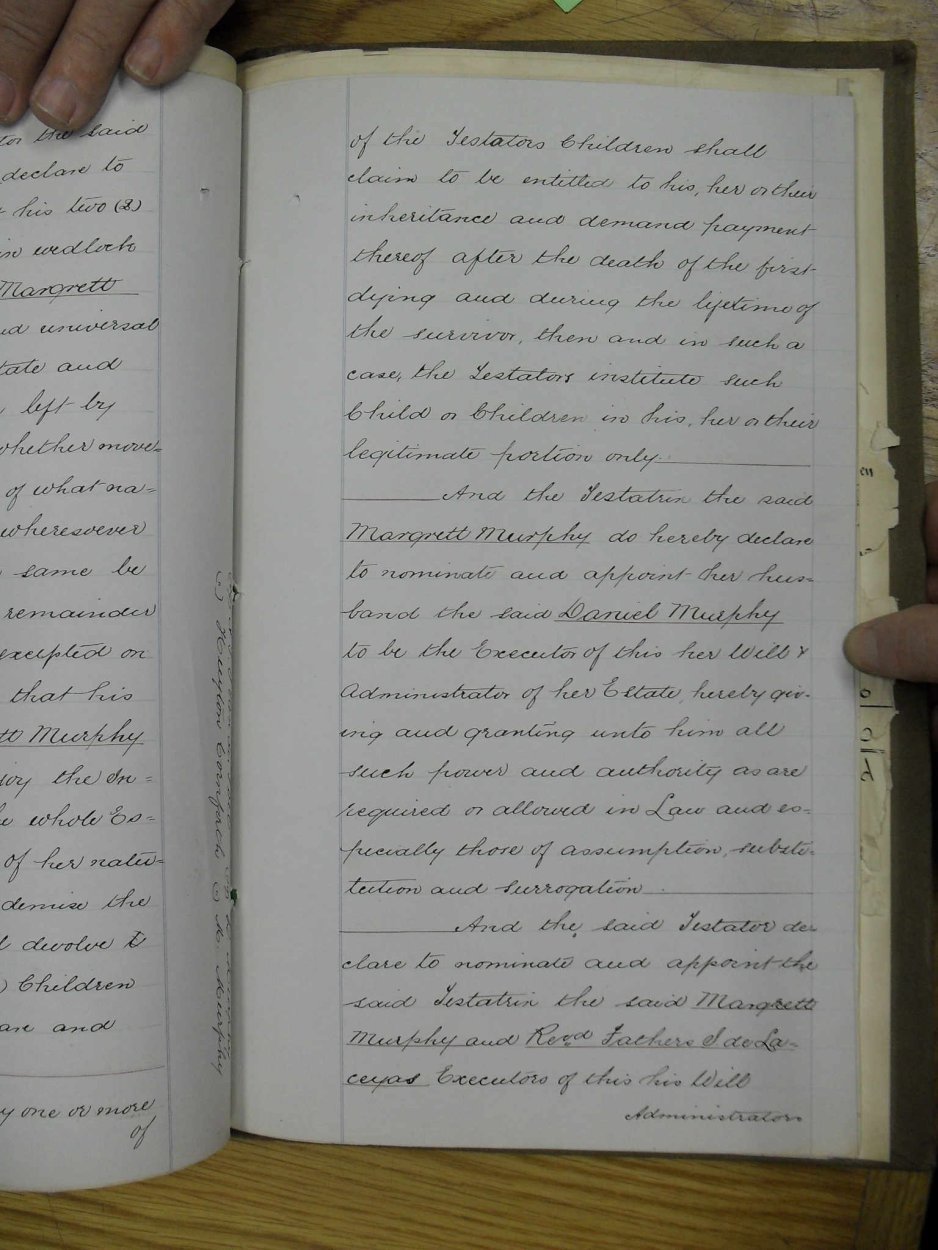 tor the said
declare to
his two (2)
in wedlock
Margrett
universal
tate and
left by
whether move=
of what na=
wheresoever
same be
remainder
excepted or
that his
tt Murphy
joy the In=
whole Es=
of her natu=
demise the
devolve to
Children
are and
y one or more
of
of the Testators Children shall
claim to be entitled to his, her or their
inheritance and demand payment
thereof after the death of the first
dying and during the lifetime of
the survivor, then and in such a
case, the Testators institute such
Child or Children in his, her or their
legitimate portion only.
And the Testatrix the said
Margrett Murphy do hereby declare
to nominate and appoint her hus=
band the said Daniel Murphy
to be the Executor of this her Will &
Administrator of her Estate, hereby giv-
ing and granting unto him all
such power and authority as are
required or allowed in Law and es=
pecially those of assumption, substi-
tution and surrogation
And the said Testator de-
clare to nominate and appoint the
said Testatrix the said Margrett
Murphy and Revd Fathers I de La-
ceyas Executors of this his Will
Administrators